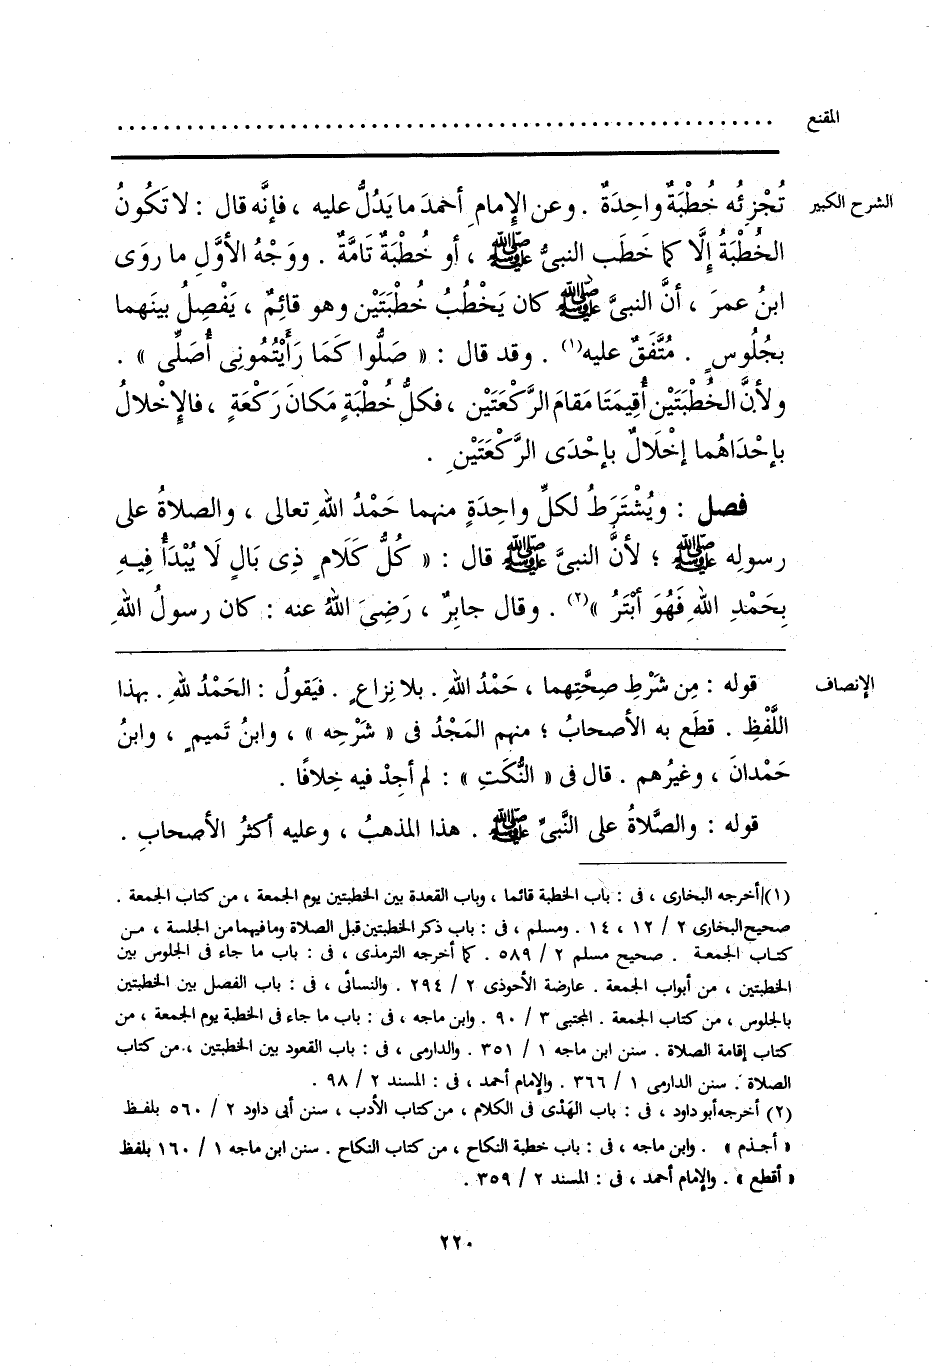 المقنع . . . . . . . . . . . . . . . . . . . . . . . . . . . . . . . . . . . . . . . . . . . . . . . . . . . . . . . .
الشرح الكبير تُجْزِئُه خُطْبَةٌ واحِدَةٌ . وعن الإِمامِ أحمدَ ما يَدُلُّ عليه ، فإنَّه قال : لا تَكُونُ
الخُطْبَةُ إلَّا كما خَطَب النبىُّ ﷺ ، أو خُطْبَةٌ تَامَّةٌ . ووَجْهُ الأوَّلِ ما روَى
ابنُ عمرَ ، أنَّ النبىَّ ﷺ كان يَخْطُبُ خُطْبَتَيْن وهو قائِمٌ ، يَفْصِلُ بينَهما
بجُلُوسٍ . مُتَّفَقٌ عليه(١) . وقد قال : « صَلُّوا كَمَا رَأَيْتُمُونِى أُصَلِّى » .
ولأنَّ الخُطْبَتَيْن أُقِيمَتَا مَقامَ الرَّكْعَتَيْن ، فكلُّ خُطْبَةٍ مَكانَ رَكْعَةٍ ، فالإِخْلالُ
بإحْدَاهُما إخْلَالٌ بإحْدَى الرَّكْعَتَيْنِ .
فصل : ويُشْتَرَطُ لكلِّ واحِدَةٍ منهما حَمْدُ اللهِ تعالى ، والصلاةُ على
رسولِه ﷺ ؛ لأنَّ النبىَّ ﷺ قال : « كُلُّ كَلَامٍ ذِى بَالٍ لَا يُبْدَأُ فِيهِ
بِحَمْدِ اللهِ فَهُوَ أبْتَرُ »(٢) . وقال جابِرٌ ، رَضِىَ اللهُ عنه : كان رسولُ اللهِ
الإنصاف قوله : مِن شَرْطِ صِحَّتِهما ، حَمْدُ اللهِ . بلا نِزاعٍ . فيَقولُ : الحَمْدُ للهِ . بهذا
اللَّفْظِ . قطَع به الأصحابُ ؛ منهم المَجْدُ فى « شَرْحِه » ، وابنُ تَميمٍ ، وابنُ
حَمْدانَ ، وغيرُهم . قال فى « النُّكَتِ » : لم أجِدْ فيه خِلافًا .
قوله : والصَّلاةُ على النَّبىِّ ﷺ . هذا المذهبُ ، وعليه أكثرُ الأصحابِ .
(١) أخرجه البخارى ، فى : باب الخطبة قائما ، وباب القعدة بين الخطبتين يوم الجمعة ، من كتاب الجمعة .
صحيح البخارى ٢ / ١٢ ، ١٤ . ومسلم ، فى : باب ذكر الخطبتين قبل الصلاة وما فيهما من الجلسة ، من
كتاب الجمعة . صحيح مسلم ٢ / ٥٨٩ . كما أخرجه الترمذى ، فى : باب ما جاء فى الجلوس بين
الخطبتين ، من أبواب الجمعة . عارضة الأحوذى ٢ / ٢٩٤ . والنسائى ، فى : باب الفصل بين الخطبتين
بالجلوس ، من كتاب الجمعة . المجتبى ٣ / ٩٠ . وابن ماجه ، فى : باب ما جاء فى الخطبة يوم الجمعة ، من
كتاب إقامة الصلاة . سنن ابن ماجه ١ / ٣٥١ . والدارمى ، فى : باب القعود بين الخطبتين ، من كتاب
الصلاة . سنن الدارمى ١ / ٣٦٦ . والإمام أحمد ، فى : المسند ٢ / ٩٨ .
(٢) أخرجه أبو داود ، فى : باب الهَدْى فى الكلام ، من كتاب الأدب ، سنن أبى داود ٢ / ٥٦٠ بلفظ
« أجذم » . وابن ماجه ، فى : باب خطبة النكاح ، من كتاب النكاح . سنن ابن ماجه ١ / ١٦٠ بلفظ
« أقطع » . والإمام أحمد ، فى : المسند ٢ / ٣٥٩ .
٢٢٠